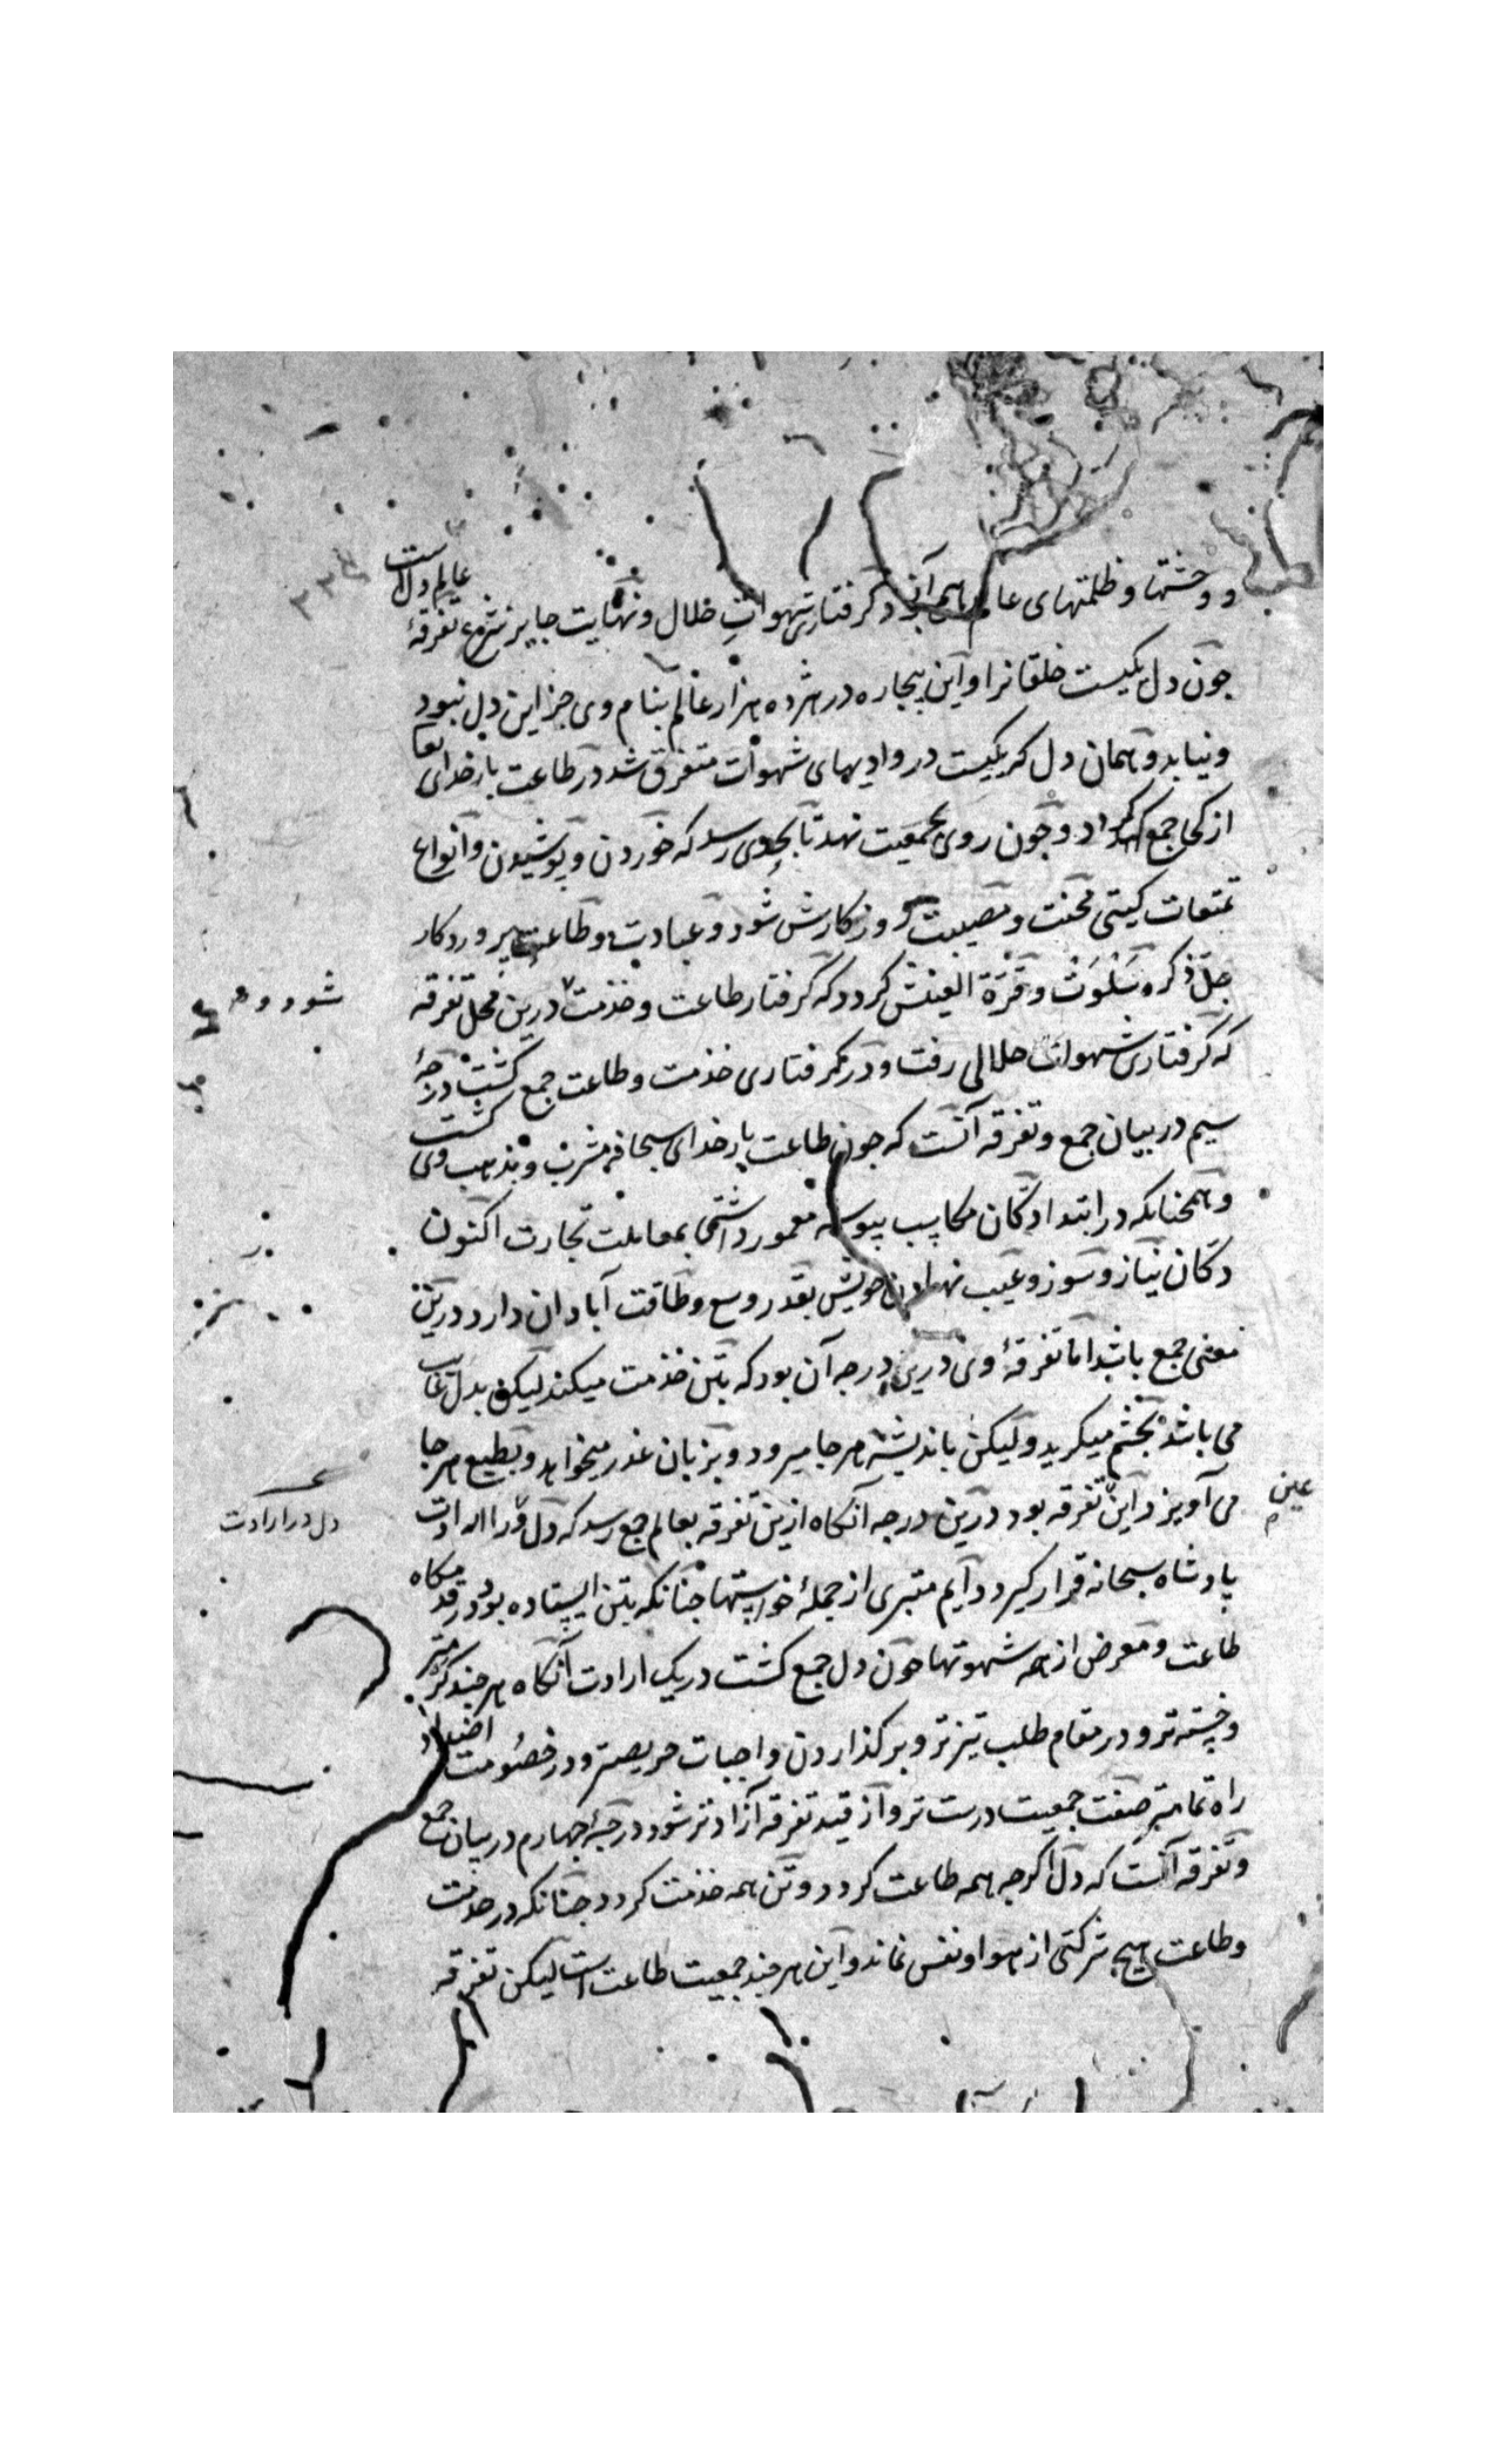 و وحشتها و ظلمتهای عالم همه آنجا بود گرفتاری شهوات حلال و نهایت جایز شرع تفرقهٔ عالم دل است
چون دل یکیست خلقانرا و این بیچاره در هژده هزار عالم بنام وی جز این دل نبود
و نیابد و همان دل که یکیست در وادیهای شهوات متفرق شد در طاعت بار خدای تعا
از کجا جمع گردد و چون روی بجمعیت نهد تا بحدی رسد که خوردن و پوشیدن و انواع
تمتعات گیتی محنت و مصیبت روزگارش شود و عبادت و طاعت پروردگار
جل ذکره سلوت و قرة العینش گردد که گرفتار طاعت و خدمت درین محل تفرقه
که گرفتاری شهوات حلالی رفت و در گرفتاری خدمت و طاعت جمع گشت درجهٔ
سیم در بیان جمع و تفرقه آنست که چون طاعت بار خدای سبحانه مشرب و مذهب وی گشت
و همچنانکه در ابتدا دکان مکاسب پیوسته معمور داشتی بمعاملت تجارت اکنون
دکان نیاز و سوز و عیب نهادن خویش بقدر وسع و طاقت آبادان دارد درین
معنی جمع باشد اما تفرقهٔ وی درین درجه آن بود که بتن خدمت میکند لیکن بدل غایب
می باشد بچشم میگرید و لیکن باندیشه هر جا میرود و بزبان عذر میخواهد و بطبع هر جا
می آویزد این تفرقه بود درین درجه آنگاه ازین تفرقه بعالم جمع رسد که دل ورا ارادت
پادشاه سبحانه قرار گیرد دایم متبری از جملهٔ خواستها چنانکه بتن ایستاده بود در قدمگاه
طاعت و معرض از همه شهوتها چون دل جمع گشت در یک ارادت آنگاه هر چند
و خسته تر و در مقام طلب تیزتر و بر گذاردن واجبات حریصتر و در خصومت اضداد
راه تمامتر صفت جمعیت درست تر و از قید تفرقه آزادتر شود درجهٔ چهارم در بیان جمع
و تفرقه آنست که دل اگرچه همه طاعت گردد و تن همه خدمت گردد چنانکه در خدمت
و طاعت هیچ شرکتی از هوا و نفس نماند و این هر چند جمعیت طاعت است لیکن تفرقه
شود و
عین
دل در ارادت